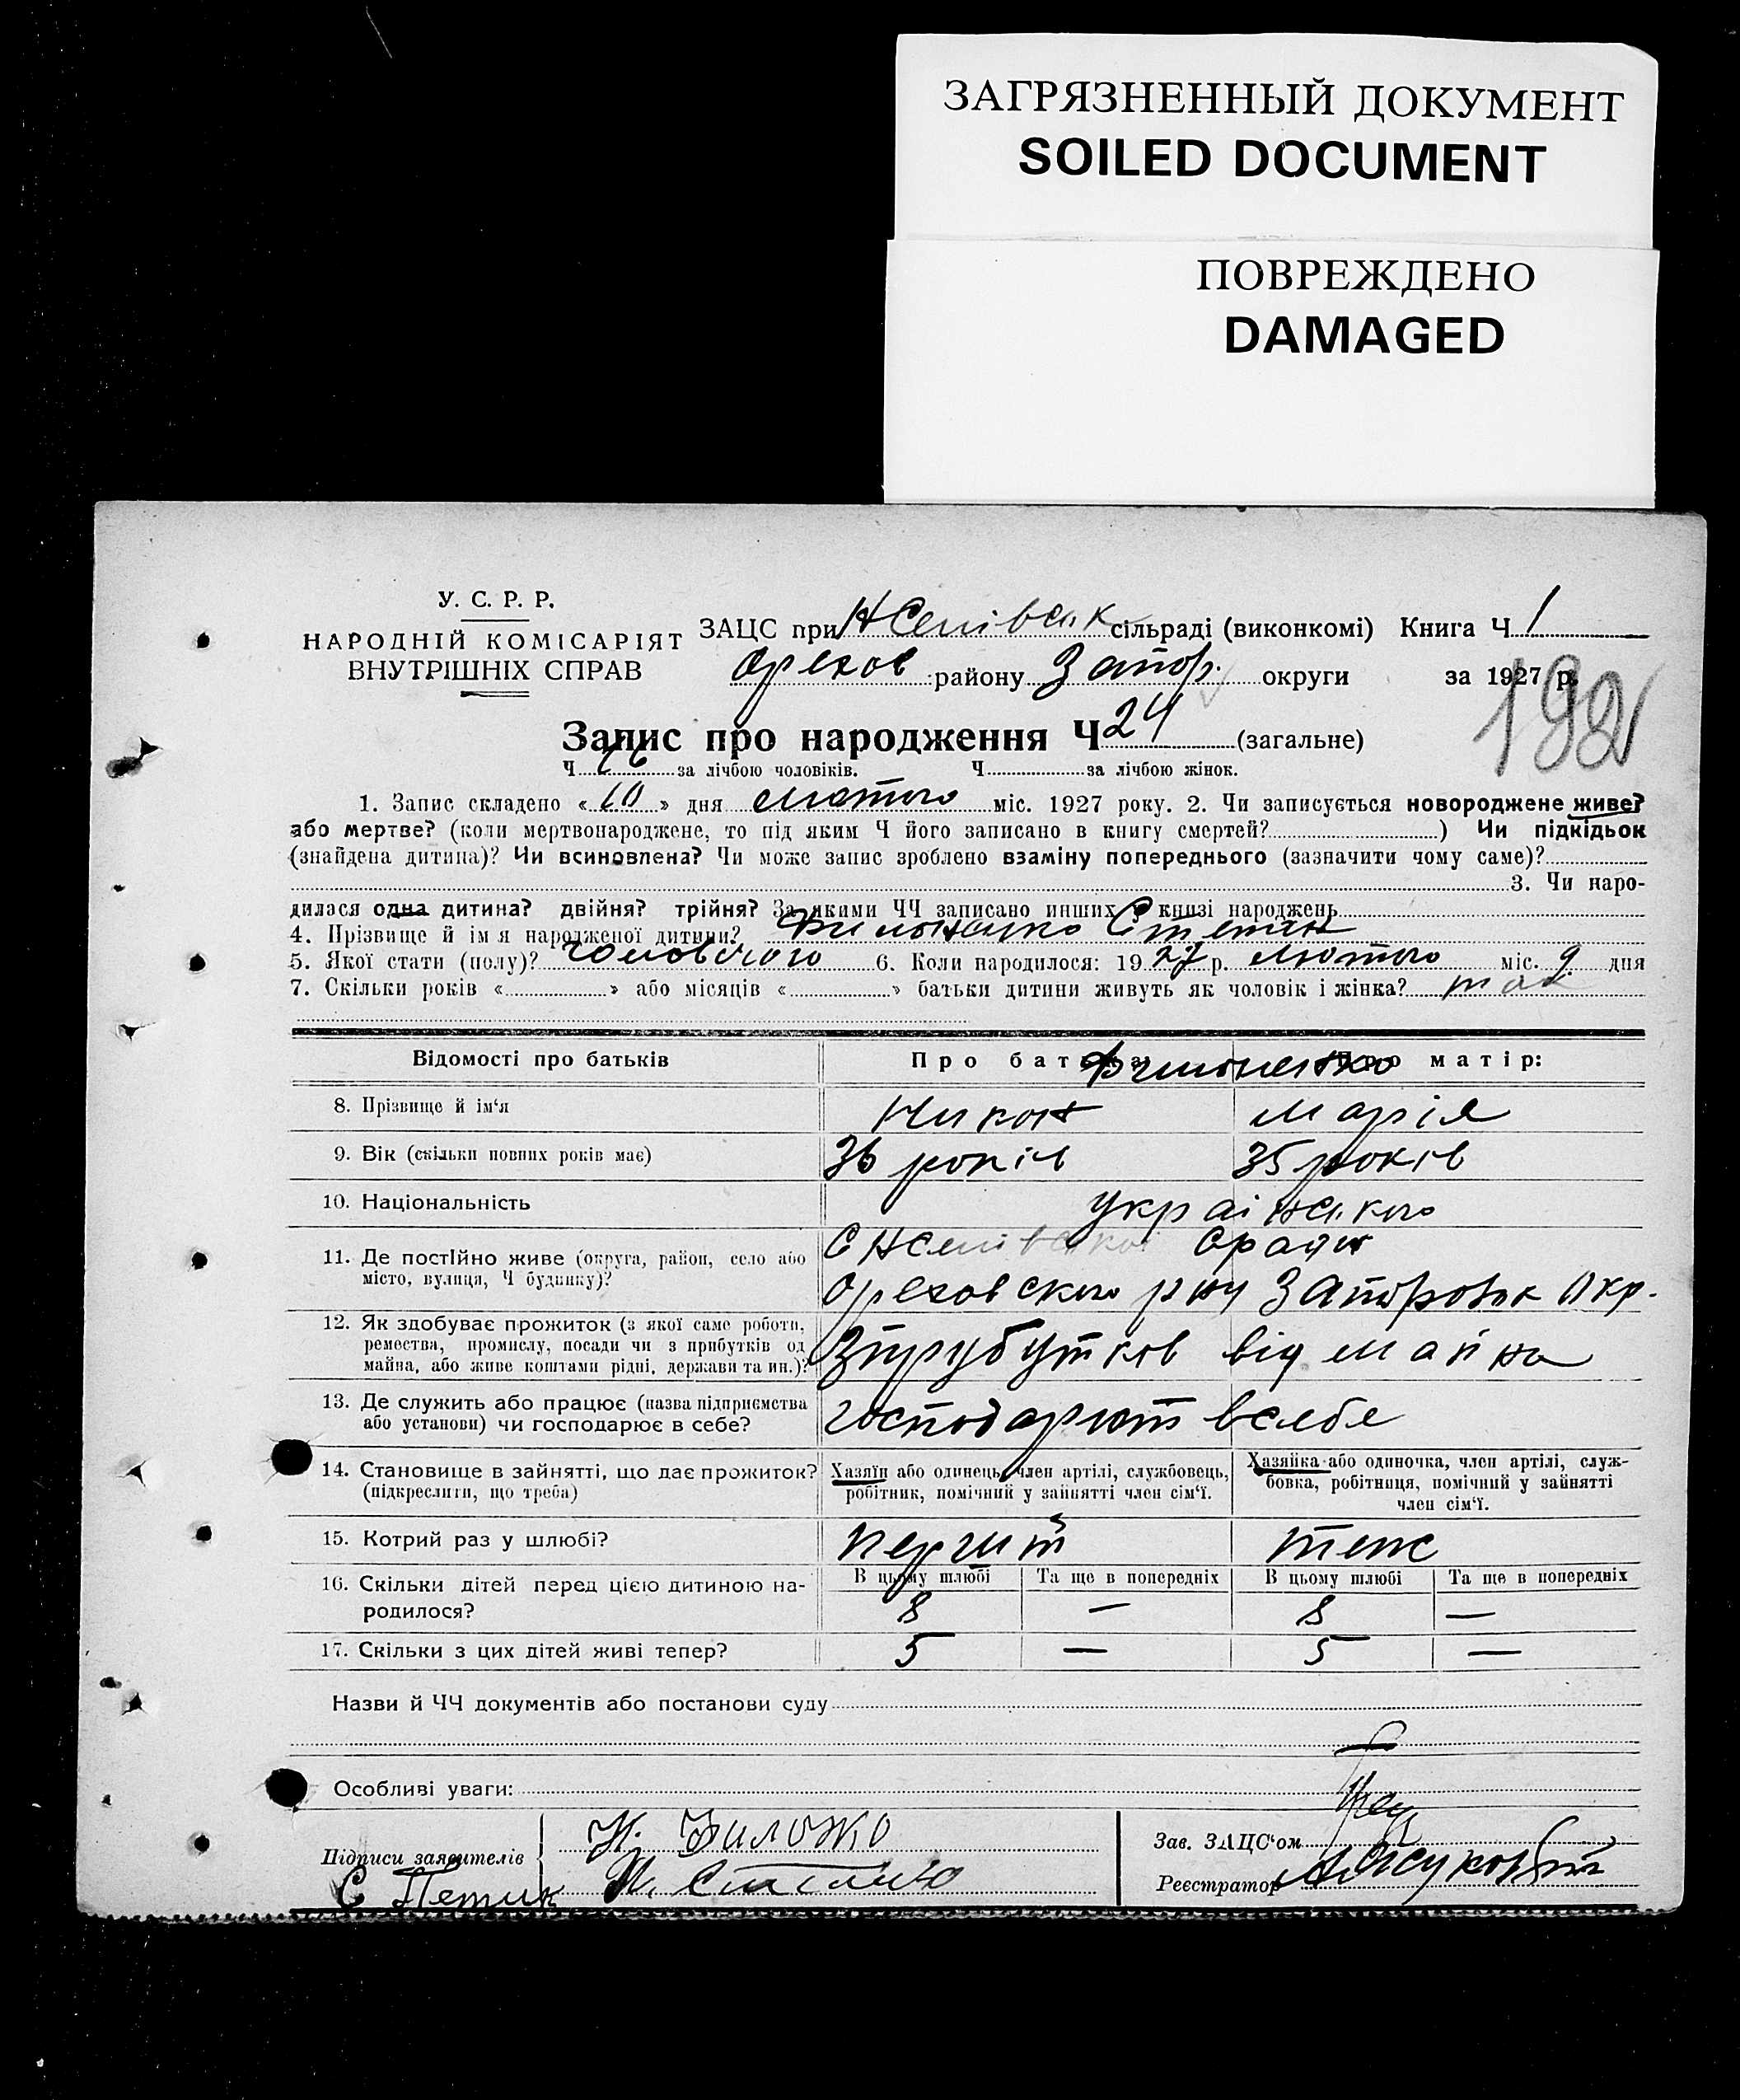 ЗАГРЯЗНЕННЫЙ ДОКУМЕНТ
SOILED DOCUMENT
ПОВРЕЖДЕНО
DAMAGED
У. С. Р. Р.
НАРОДНІЙ КОМІСАРІЯТ
ВНУТРІШНІХ СПРАВ
ЗАЦС при сільраді (виконкомі) Книга Ч 1
Орехов району Запор. округи за 1927 р.
192
Запис про народження Ч 24 (загальне)
Ч. 16 за лічбою чоловіків. Ч. за лічбою жінок.
1. Запис складено « 10 » дня лютого міс. 1927 року. 2. Чи записується новороджене живе?
або мертве? (коли мертвонароджене, то під яким Ч його записано в книгу смертей? ) Чи підкідьок
(знайдена дитина)? Чи всиновлена? Чи може запис зроблено взаміну попереднього (зазначити чому саме)?
3. Чи наро-
дилася одна дитина? двійня? трійня? За якими ЧЧ записано инших у книзі народжень
4. Прізвище й ім я народженої дитини? Степан
5. Якої стати (полу)? чоловічого 6. Коли народилося: 19 27 р. лютого міс. 9 дня
7. Скільки років « » або місяців « » батьки дитини живуть як чоловік і жінка? так
Відомості про батьків Про батька: Про матір:
Филоненко
8. Прізвище й ім'я Никон Марія
9. Вік (скільки повних років має) 36 років 35 років
10. Національність українського
11. Де постійно живе (округа, район, село або
місто, вулиця, Ч будинку)?
С сради
Ореховского рну Запорозьк Окр.
12. Як здобуває прожиток (з якої саме роботи,
ремества, промислу, посади чи з прибутків од
майна, або живе коштами рідні, держави та ин.)?
Зпрубутків від майна
13. Де служить або працює (назва підприємства
або установи) чи господарює в себе?
господарюют всебе
14. Становище в зайнятті, що дає прожиток?
(підкреслити, що треба)
Хазяїн або одинець, член артілі, службовець,
робітник, помічний у зайнятті член сім'ї.
Хазяйка або одиночка, член артілі, служ-
бовка, робітниця, помічний у зайнятті
член сім'ї.
15. Котрий раз у шлюбі? теж
16. Скільки дітей перед цією дитиною на-
родилося?
В цьому шлюбі Та ще в попередніх В цьому шлюбі Та ще в попередніх
8 — 8 —
17. Скільки з цих дітей живі тепер? 5 — 5 —
Назви й ЧЧ документів або постанови суду
Особливі уваги:
Підписи заявителів
С Петик
Зав. ЗАЦС'ом
Реєстратор